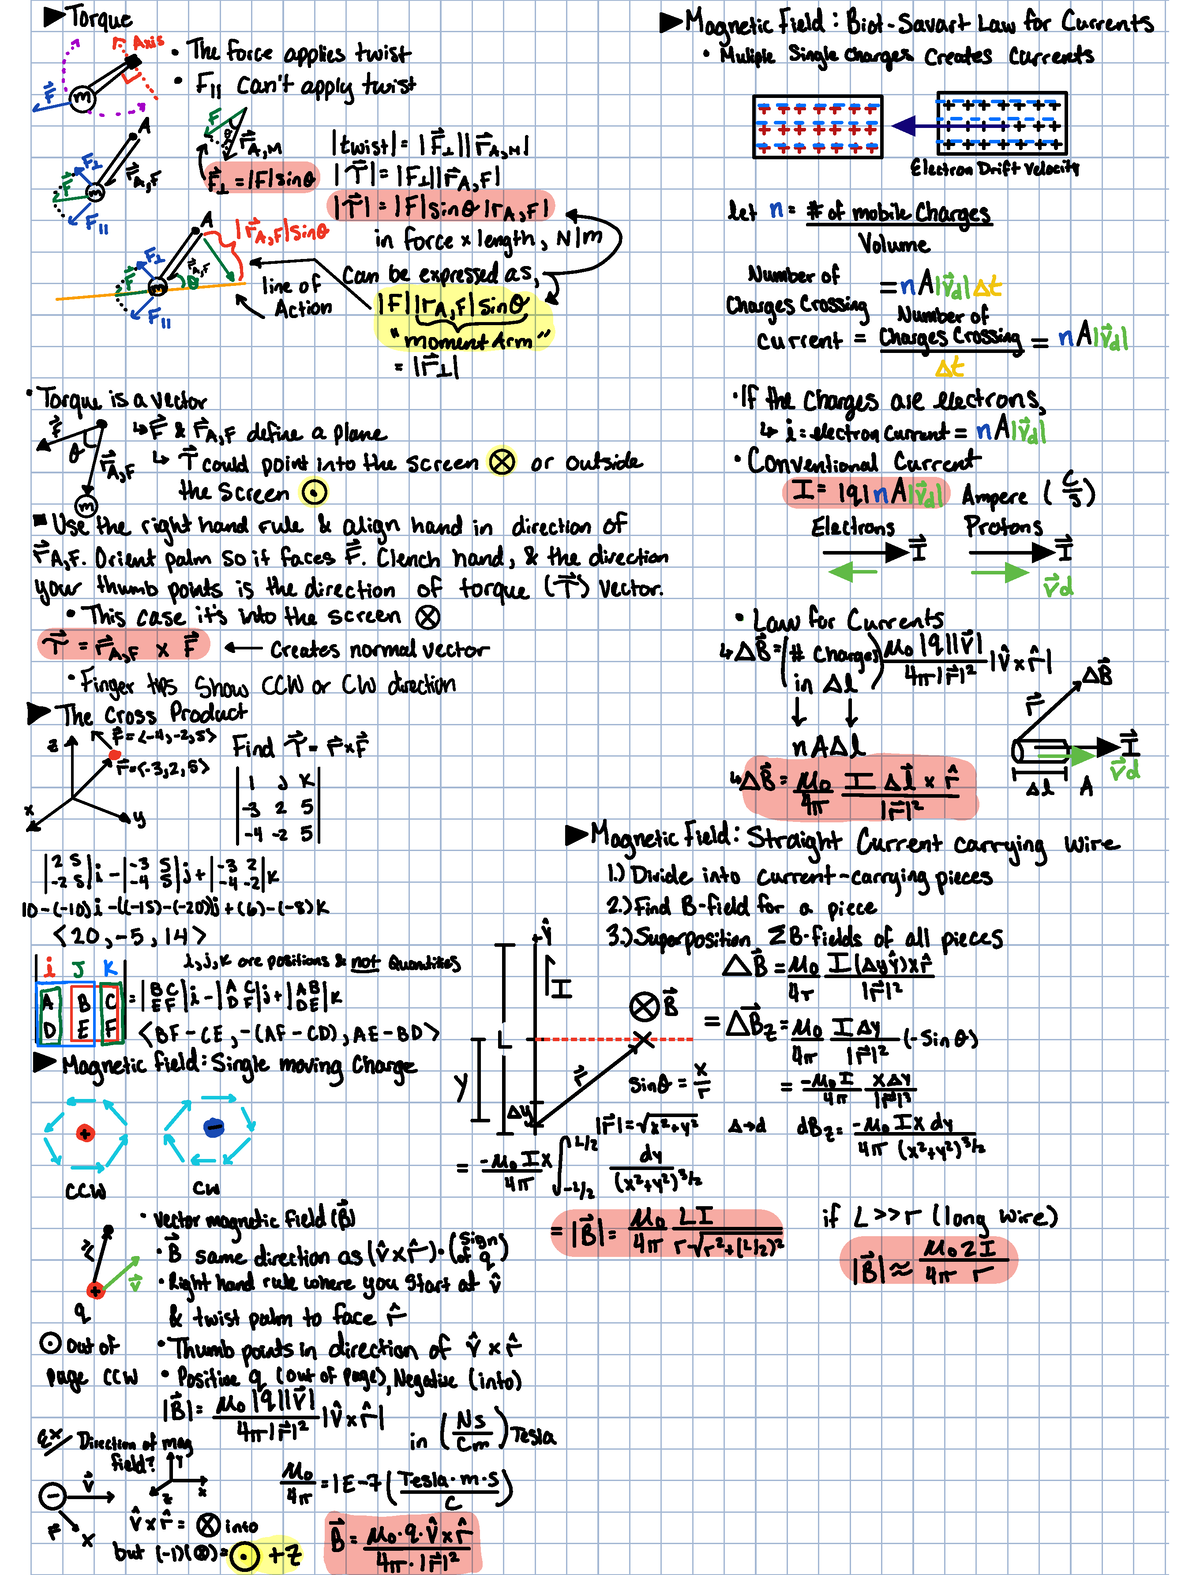 ▶Torque
Axis
• The force applies twist
• F|| can't apply twist
F⃗
m
A
F⊥
F⃗
r⃗A,F
m
F||
F⃗
θ
r⃗A,M
F⃗⊥ = |F|sinθ
|twist| = |F⃗⊥||r⃗A,M|
|τ⃗| = |F⊥||r⃗A,F|
|τ⃗| = |F|sinθ|rA,F|
in force x length, N/m
A
|r⃗A,F|sinθ
F⊥
F⃗
r⃗A,F
θ
m
F||
line of Action
Can be expressed as,
|F||rA,F|sinθ
"moment Arm"
= |r⃗⊥|
• Torque is a vector
↳ F⃗ & r⃗A,F define a plane
↳ τ⃗ could point into the screen ⊗ or outside
the screen ⊙
F⃗
θ
r⃗A,F
m
▪ Use the right hand rule & align hand in direction of
r⃗A,F. Orient palm so it faces F⃗. Clench hand, & the direction
your thumb points is the direction of torque (τ⃗) vector.
• This case it's into the screen ⊗
τ⃗ = r⃗A,F x F⃗ ← Creates normal vector
• Finger tips show CCW or CW direction
▶ The Cross Product
F⃗=<-4,-2,5>
r⃗=<-3,2,5>
z
x
y
Find τ⃗ = r⃗xF⃗
| i J K |
| -3 2 5 |
| -4 -2 5 |
|2 5; -2 5|i - |-3 5; -4 5|j + |-3 2; -4 -2|K
10-(-10)i -((-15)-(-20))j + (6)-(-8)K
<20, -5, 14>
i J K
A B C
D E F
i,j,K are positions & not Quantities
= |B C; E F|i - |A C; D F|j + |A B; D E|K
<BF-CE, -(AF-CD), AE-BD>
▶Magnetic field: Single moving Charge
+
−
CCW
CW
r⃗
v⃗
+
q
• Vector magnetic field (B⃗)
• B⃗ same direction as (v̂ x r̂)•(sign of q)
• Right hand rule where you start at v̂
& twist palm to face r̂
⊙ out of
page CCW
• Thumb points in direction of v̂ x r̂
• Positive q (out of page), Negative (into)
|B⃗| = μ₀|q||v⃗| / 4π|r⃗|² |v̂ x r̂|
in (Ns/Cm) Tesla
ex/ Direction of mag
field?
y
x
z
−
v⃗
r⃗
x
v̂ x r̂ = ⊗ into
but (-1)(⊗)= ⊙ +z
μ₀/4π = 1E-7 (Tesla·m·s / C)
B⃗ = μ₀·q·v̂ x r̂ / 4π·|r⃗|²
▶Magnetic Field: Biot-Savart Law for Currents
• Muliple Single Charges Creates Currents
Electron Drift Velocity
let n = # of mobile Charges / Volume
Number of
Charges Crossing = nA|v⃗d|Δt
current = Number of Charges Crossing / Δt = nA|v⃗d|
• If the Charges are electrons,
↳ i = electron Current = nA|v⃗d|
• Conventional Current
I = |q|nA|v⃗d| Ampere (C/s)
Electrons Protons
I⃗
I⃗
v⃗d
• Law for Currents
↳ ΔB⃗ = (# Charges in Δl) μ₀|q||v⃗| / 4π|r⃗|² |v̂ x r̂|
nAΔl
↳ ΔB⃗ = μ₀/4π IΔl⃗ x r̂ / |r⃗|²
ΔB⃗
r⃗
I⃗
v⃗d
Δl
A
▶Magnetic Field: Straight Current carrying wire
1.) Divide into current-carrying pieces
2.) Find B-field for a piece
3.) Superposition ΣB-fields of all pieces
+ŷ
I
⊗ B⃗
L
y
Δy
r⃗
sinθ = x/r
|r⃗| = √x²+y²
Δ→d
ΔB⃗ = μ₀/4π I(Δyŷ) x r̂ / |r⃗|²
= ΔB⃗z = μ₀/4π IΔy / |r⃗|² (-sinθ)
= -μ₀I/4π xΔy / |r⃗|³
dBz = -μ₀/4π Ix dy / (x²+y²)^3/2
= -μ₀Ix/4π ∫ L/2 -L/2 dy / (x²+y²)^3/2
= |B⃗| = μ₀/4π LI / r√r²+(L/2)²
if L>>r (long wire)
|B⃗| ≈ μ₀2I / 4π r